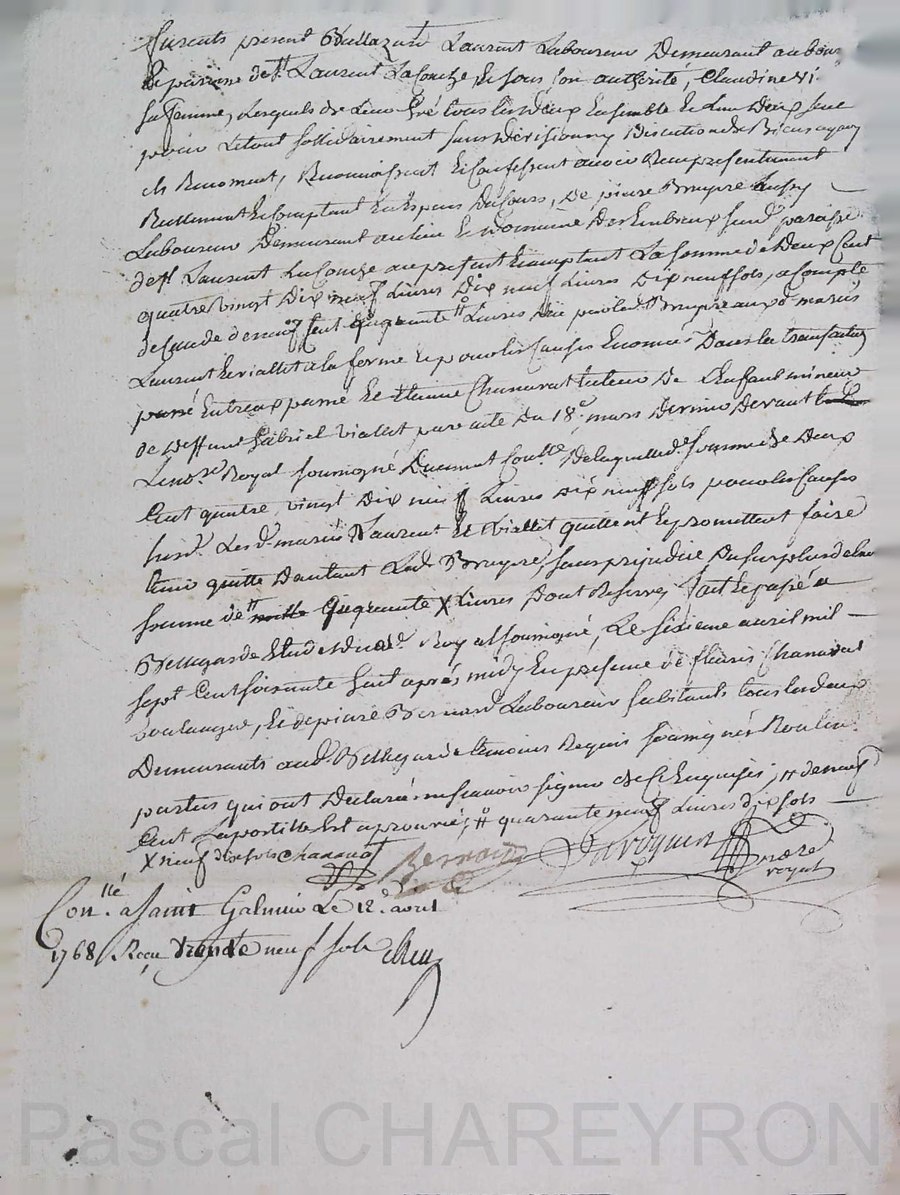 furents present Balthazard Laurent Laboureur Demeurant au bour
et parroisse de st Laurent La Conche et sous son authorité, Claudine Vi
sa femme, Lesquels de leur Gré tous les deux Ensemble et L'un Deux seul
pour Le tout sollidairement sans Division ny Discution de Biens ayant
ch Renoncant, Reconnoissent et confessent avoir Recu presentement
Reellement et comptant en Especes Du Cours, De pierre Bruyere aussy
Laboureur Demeurant au lieu et Domaine Des susd. paroisse
de st Laurent La Conche au present et acceptant La somme de Deux Cent
quatre vingt Dix neuf Livres Dix neuf sols, a Compte
de Celle de neuf Cent Cinquante # Livres Due par led. Bruyere auxd. mariés
Laurent et viallet a la forme et pour les Causes Enoncées Dans la transaction
passé Entre eux parné et Etienne Chanavat tuteur De L'Enfant mineur
de Deffunt Gabriel viallet par acte Du 18e. mars Dernier Devant
Le nore. Royal soussigné Duement Conllé. De laquelle de. somme de Deux
Cent quatre vingt Dix neuf Livres Dix neuf sols pour les Causes
susd. Lesd. mariés Laurent et viallet quittent et promettent faire
tenir quitte Dautant Led. Bruyere, sans prejudice Du surplus de la
somme de # Cinquante X Livres Dont Reserve, fait et passé a
Bellegarde Etude Dud. Ne. Royal soussigné, Le sixieme avril mil
sept Cent soixante huit après midy En presence de fleuris Chanavat
boulanger, et de pierre Bernard Laboureur habitants tous les deux
Demeurants aud. Bellegarde temoins Requis soussignés Non les
parties qui ont Declaré ne scavoir signer de ce Enquises; # de neuf
Cent Lapostille Est aprouvée, # quarante neuf Livres dix sols
X neuf dix sols Chanavat Bernard Javogues nore royal
Conllé. a Saint Galmier Le 12e. avril
1768 Reçu trente neuf sols
Pascal CHAREYRON